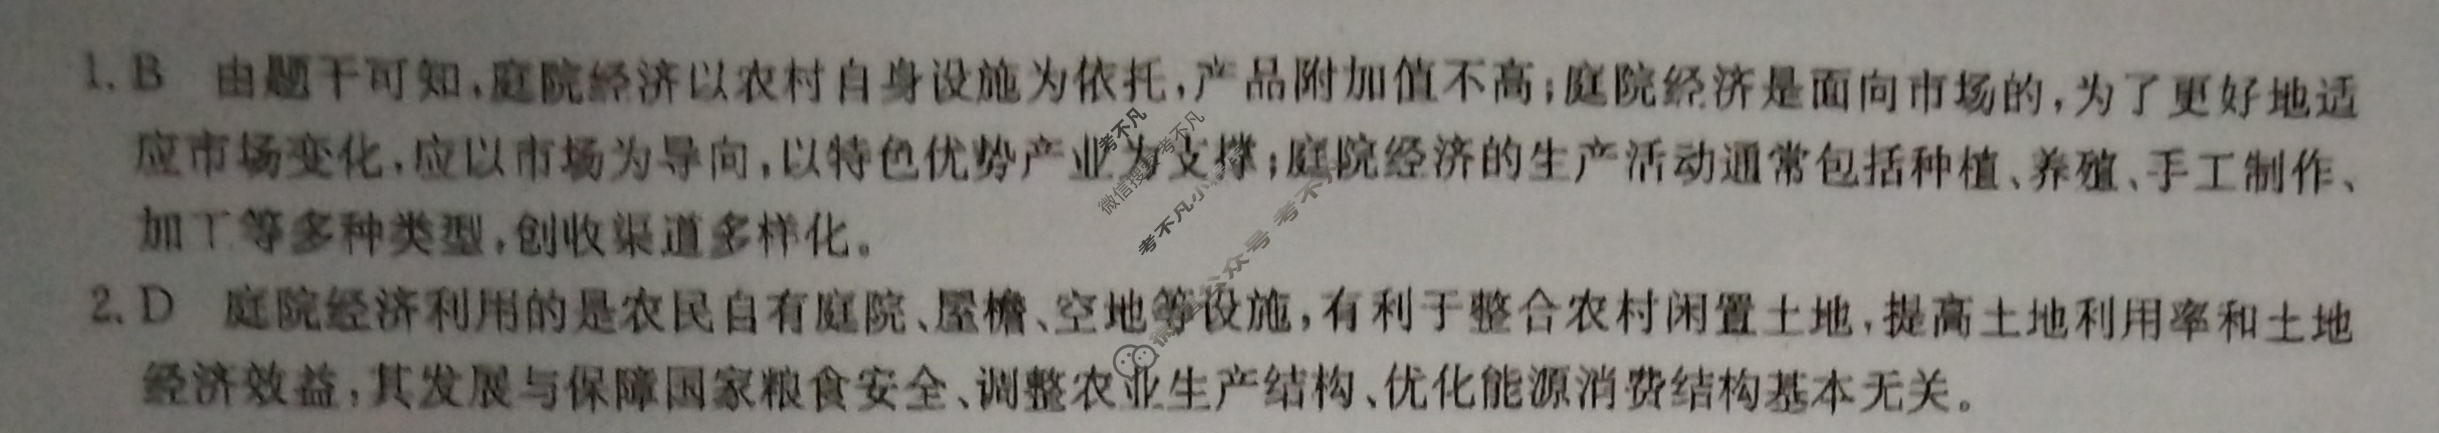 1. B 由题干可知,庭院经济以农村自身设施为依托,产品附加值不高;庭院经济是面向市场的,为了更好地适
应市场变化,应以市场为导向,以特色优势产业为支撑;庭院经济的生产活动通常包括种植、养殖、手工制作、
加工等多种类型,创收渠道多样化。
2. D 庭院经济利用的是农民自有庭院、屋檐、空地等设施,有利于整合农村闲置土地,提高土地利用率和土地
经济效益,其发展与保障国家粮食安全、调整农业生产结构、优化能源消费结构基本无关。
考不凡
微信搜索考不凡
考不凡小